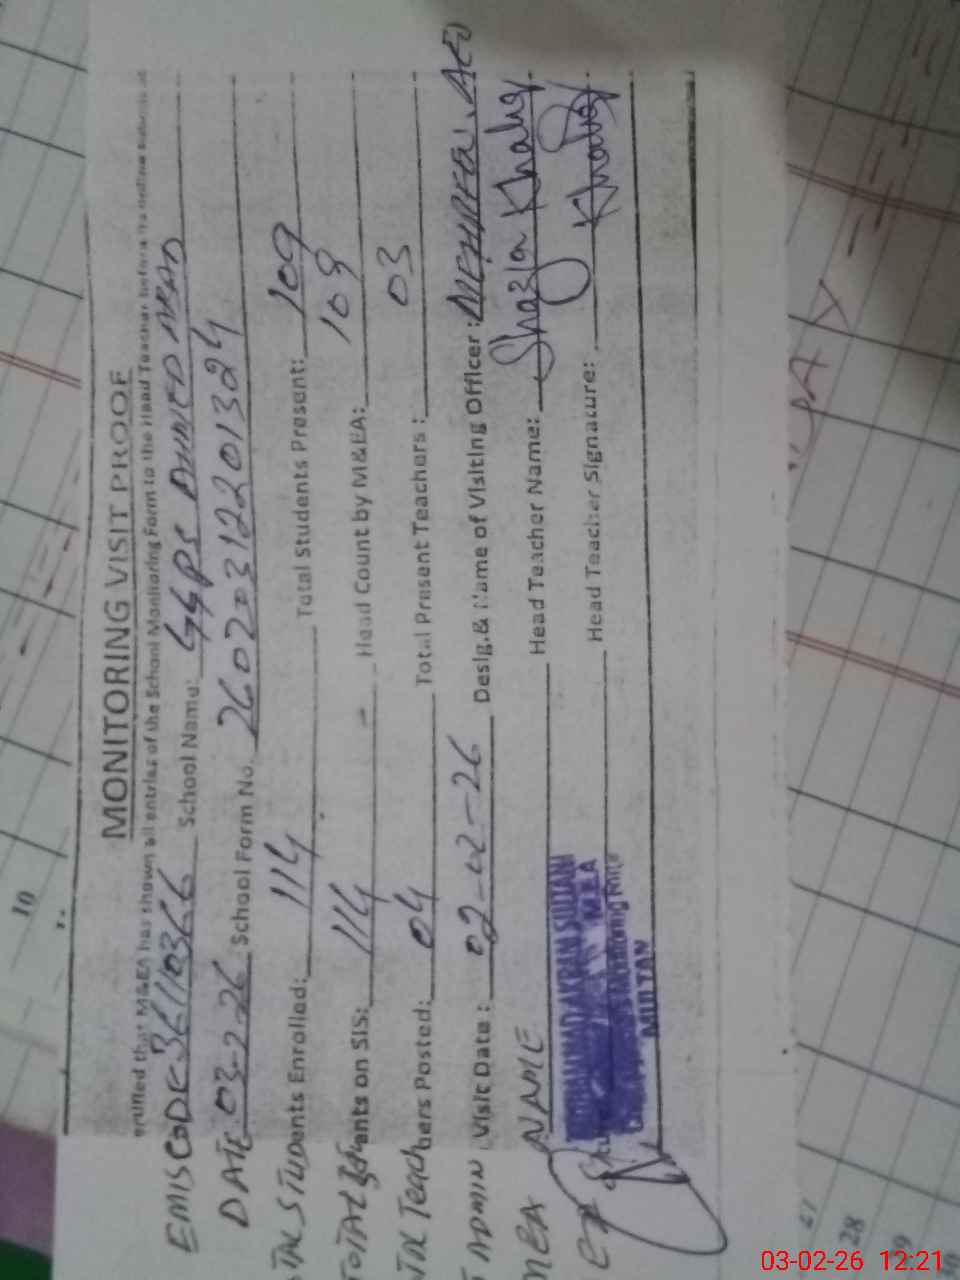 MONITORING VISIT PROOF
ertified that M&EA has shown all entries of the School Monitoring Form to the Head Teacher before
EMIS CODE 36110366 School Name: GGPS AHMED ABAD
DATE 03-2-26 School Form No. 260203122201324
TAL STUDENTS Enrolled: 114 Total Students Present: 109
TOTAL Students on SIS: 114 Head Count by M&EA: 109
TAL Teachers Posted: 04 Total Present Teachers: 03
T ADMIN Visit Date: 02-02-26 Desig.& Name of Visiting Officer: AEO
MEA NAME Head Teacher Name: Shazia Khaliq
MUHAMMAD AKRAM SULTANI
Head Teacher Signature: Khaliq
MEA
Monitoring
MULTAN
10
27
28
29
03-02-26 12:21